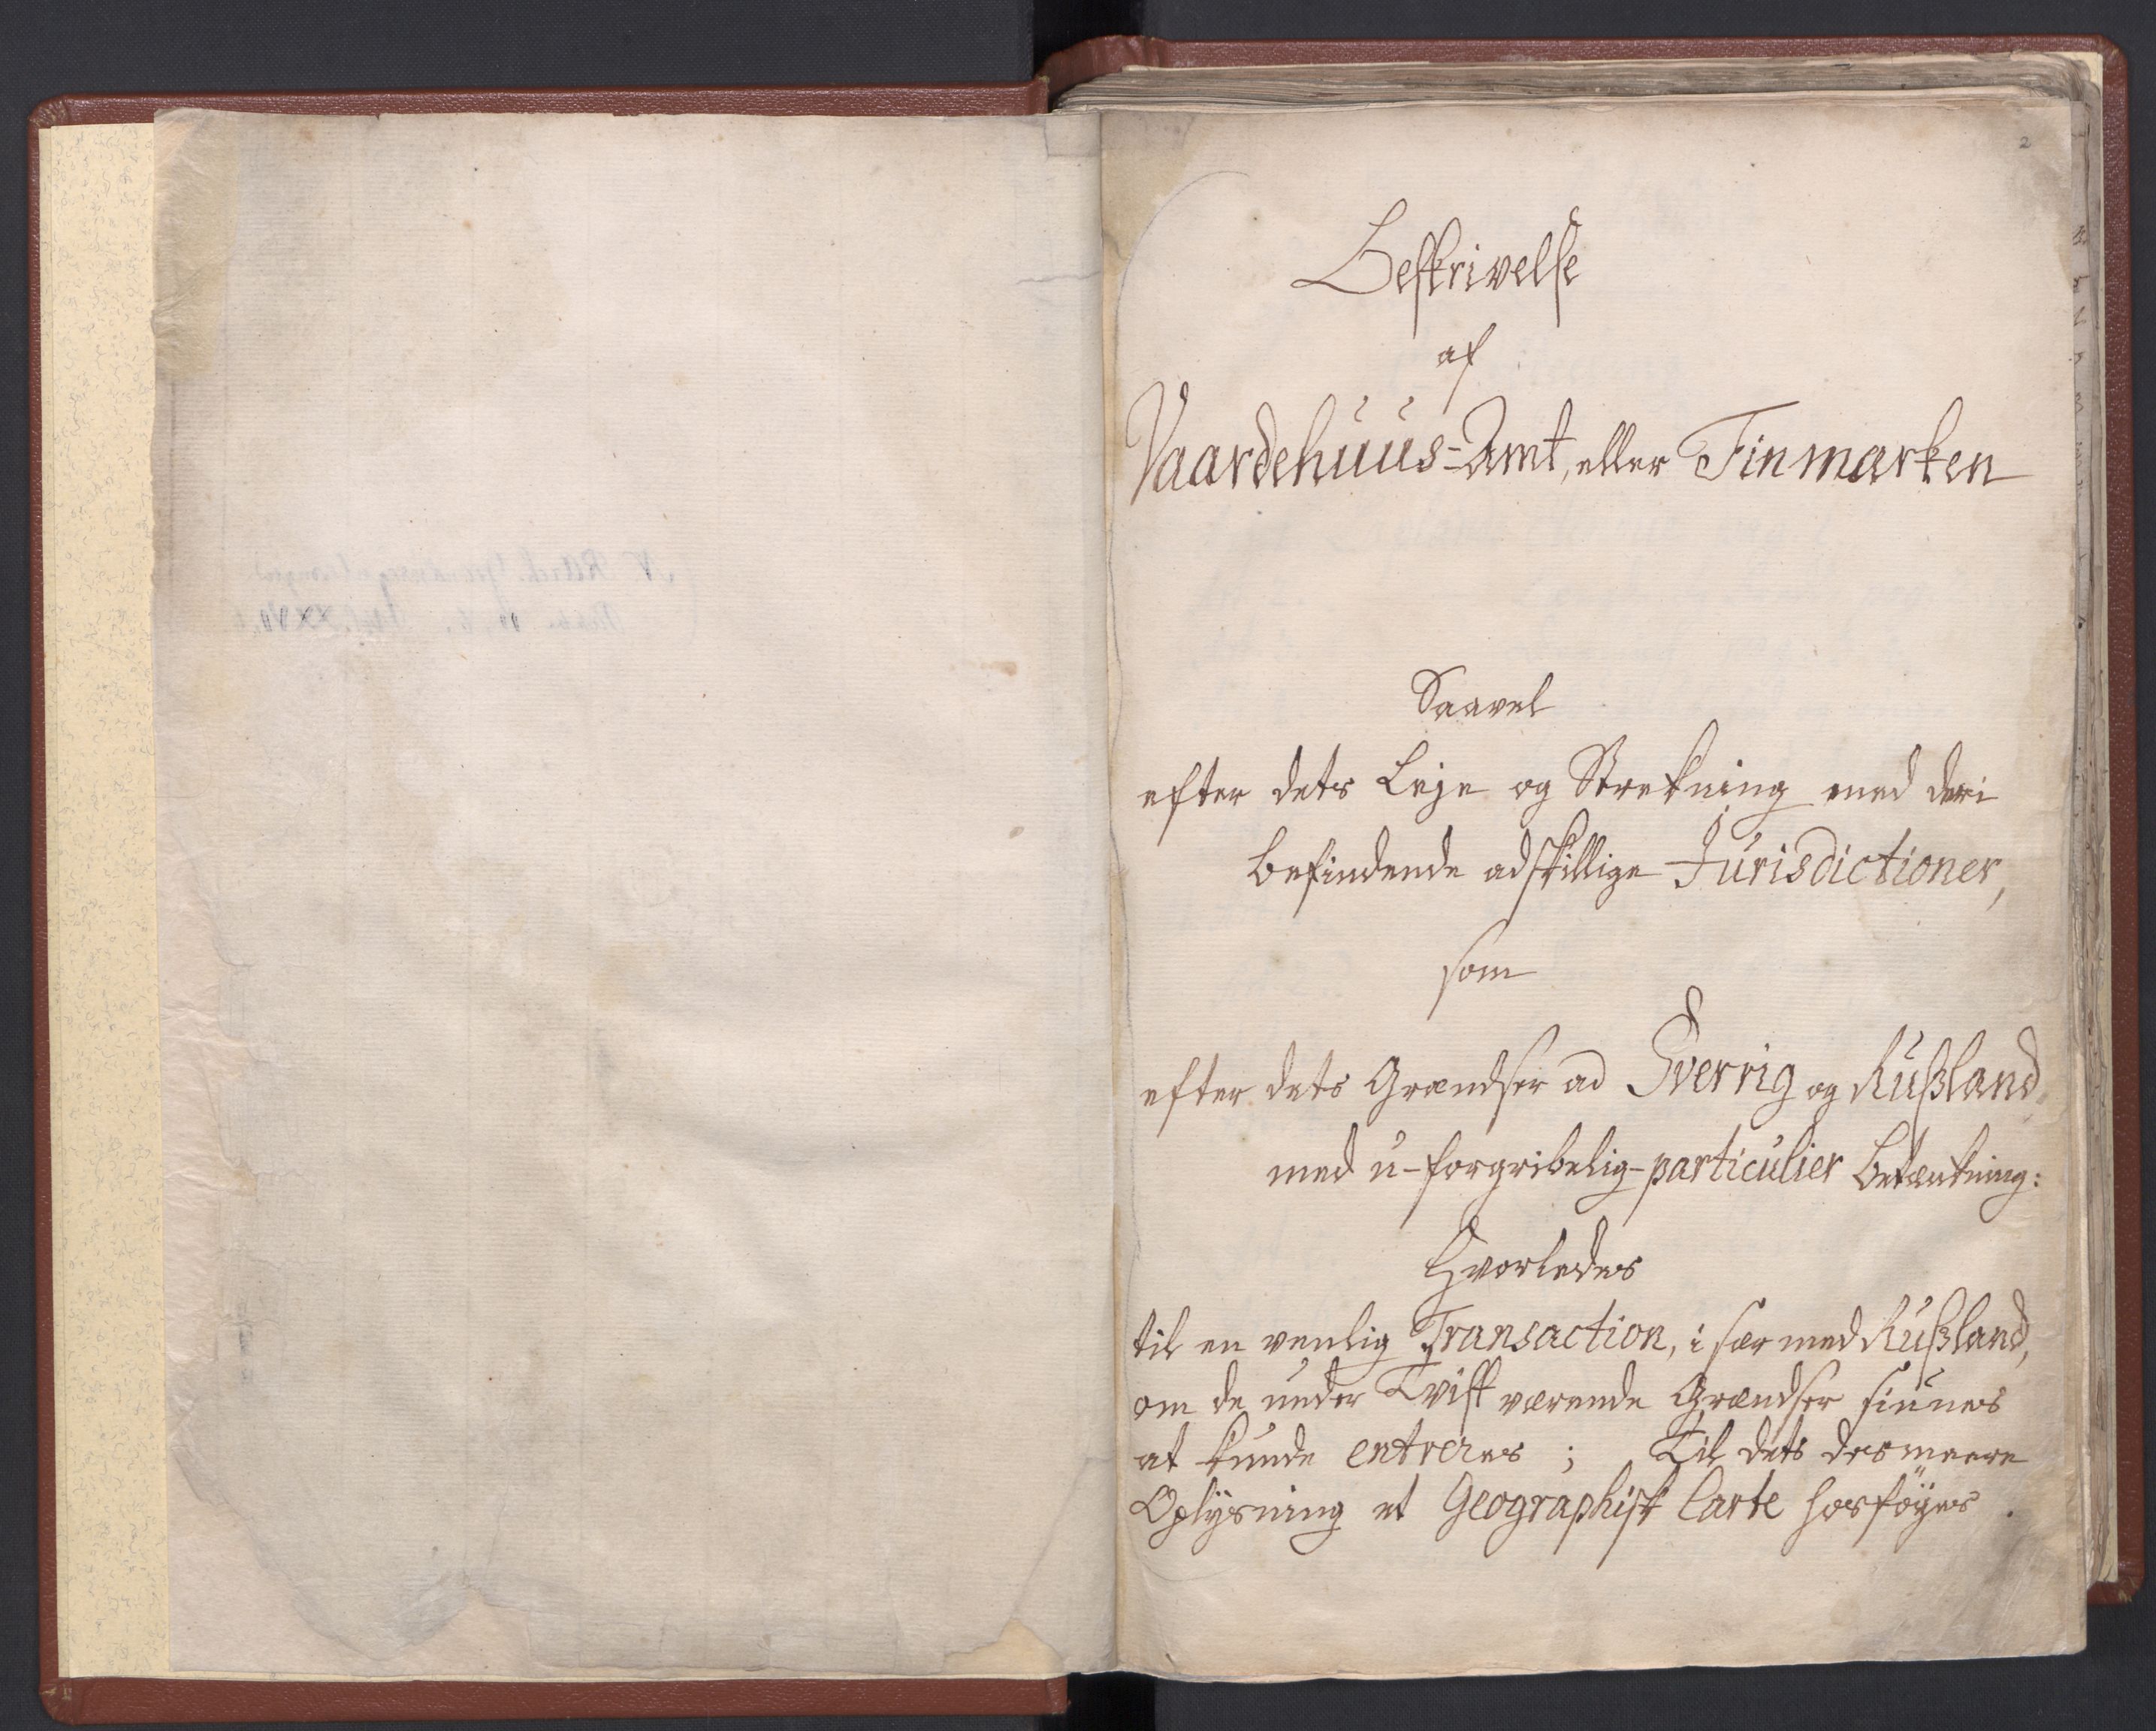 2
Beskrivelse
af
Vaardehuus-Amt, eller Finmarken
Saavel
efter dets Leje og Strekning med deri
befindende adskillige Jurisdictioner,
som
efter dets Grændser ad Sverrig og Rußland
med u-forgribelig-particulier Betænkning:
Hvorledes
til en venlig Transaction, i sær med Rußland,
om de under Tvist værende Grændser siunes
at kunde entreres ; Til dets des meere
Oplysning et Geographisk Carte hosföyes .